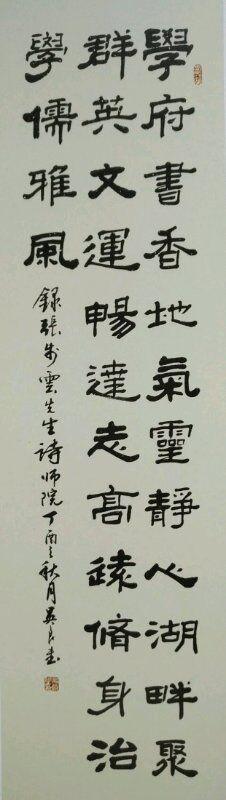 學府書香地氣靈靜心湖畔聚
群英文運暢達志高遠脩身治
學儒雅風
錄張步雲先生詩師院丁酉之秋月吳良書